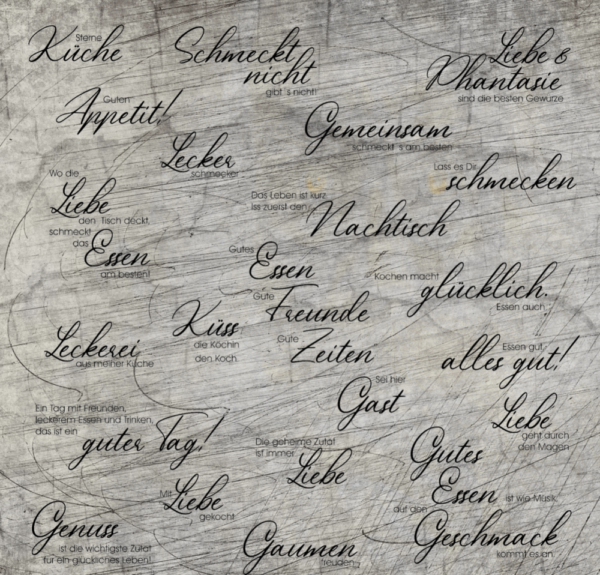 Sterne
Küche
Schmeckt
nicht
gibt´s nicht!
Liebe &
Phantasie
sind die besten Gewürze
Guten
Appetit!
Gemeinsam
schmeckt´s am besten
Lecker
schmecker
Lass es Dir
schmecken
Wo die
Liebe
den Tisch deckt,
schmeckt
das
Essen
am besten!
Das Leben ist kurz
Iss zuerst den
Nachtisch
Gutes
Essen
Gute
Freunde
Gute
Zeiten
Kochen macht
glücklich.
Essen auch
Küss
die Köchin
den Koch
Leckerei
aus meiner Küche
Essen gut,
alles gut!
Sei hier
Gast
Ein Tag mit Freunden,
leckerem Essen und Trinken,
das ist ein
guter Tag!
Liebe
geht durch
den Magen
Die geheime Zutat
ist immer
Liebe
Gutes
Essen ist wie Musik,
auf den
Geschmack
kommt es an.
Mit
Liebe
gekocht
Genuss
ist die wichtigste Zutat
für ein glückliches Leben!
Gaumen
freuden